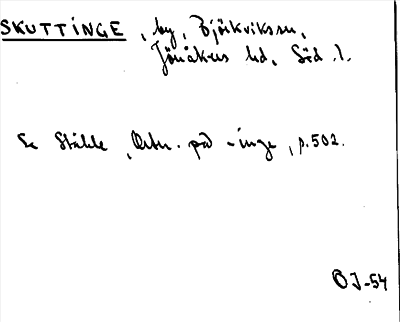 SKUTTINGE, by, Björkvikssn,
Jönåkers hd, Söd. l.
Se Ståhle, Ortn. på -inge, p. 502.
ÖJ-54